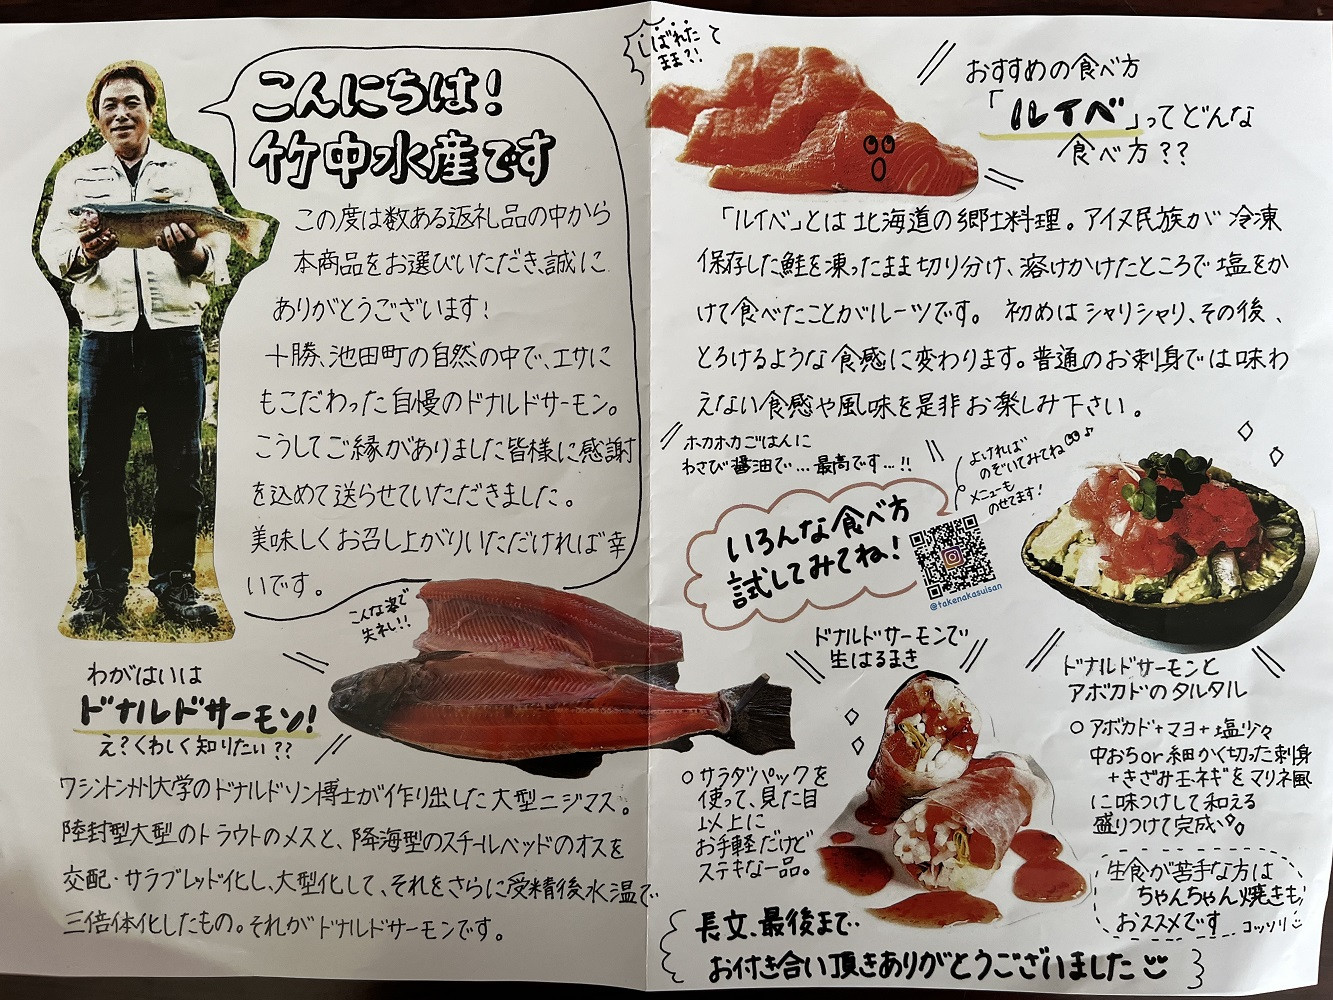 こんにちは!
竹中水産です
この度は数ある返礼品の中から
本商品をお選びいただき、誠に
ありがとうございます!
十勝、池田町の自然の中で、エサに
もこだわった自慢のドナルドサーモン。
こうしてご縁がありました皆様に感謝
を込めて送らせていただきました。
美味しくお召し上がりいただければ幸
いです。
こんな姿で
失礼!!
わがはいは
ドナルドサーモン!
え?くわしく知りたい??
ワシントン州大学のドナルドソン博士が作り出した大型ニジマス。
陸封型大型のトラウトのメスと、降海型のスチールヘッドのオスを
交配・サラブレッド化し、大型化して、それをさらに受精後水温で
三倍体化したもの。それがドナルドサーモンです。
しばれた
まま?!
って
おすすめの食べ方
「ルイベ」ってどんな
食べ方??
「ルイベ」とは北海道の郷土料理。アイヌ民族が冷凍
保存した鮭を凍ったまま切り分け、溶けかけたところで塩をか
けて食べたことがルーツです。初めはシャリシャリ、その後、
とろけるような食感に変わります。普通のお刺身では味わ
えない食感や風味を是非お楽しみ下さい。
ホカホカごはんに
わさび醤油で...最高です...!!
よければ
のぞいてみてね♪
メニューも
のせてます!
いろんな食べ方
試してみてね!
@takenakasuisan
ドナルドサーモンで
生はるまき
○サラダパックを
使って、見た目
以上に
お手軽だけど
ステキな一品。
ドナルドサーモンと
アボカドのタルタル
○アボカド+マヨ+塩少々
中おちor細かく切った刺身
+きざみ玉ネギをマリネ風
に味つけして和える
盛りつけて完成
生食が苦手な方は
ちゃんちゃん焼きも
おススメです コッソリ
長文、最後まで..
お付き合い頂きありがとうございました